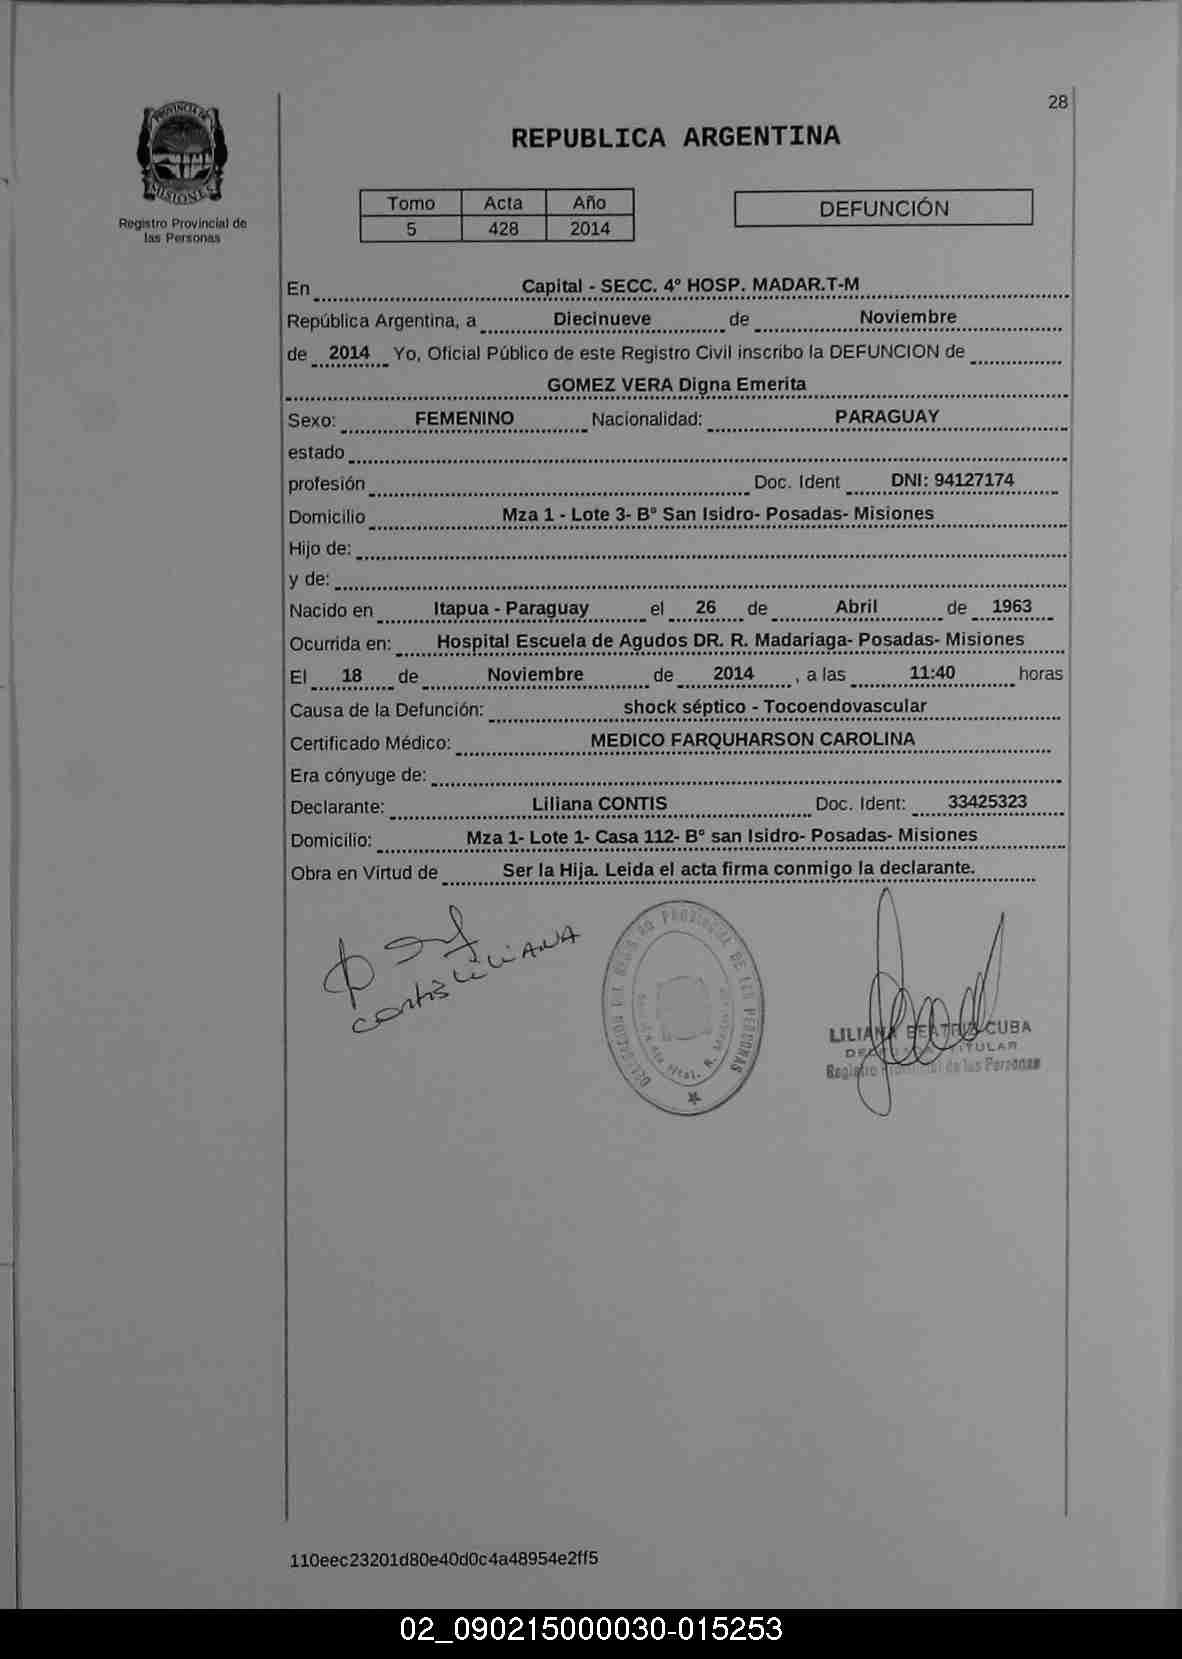 28
PROVINCIA DE
MISIONES
Registro Provincial de
las Personas
REPUBLICA ARGENTINA
Tomo Acta Año
5 428 2014
DEFUNCIÓN
En Capital - SECC. 4º HOSP. MADAR.T-M
República Argentina, a Diecinueve de Noviembre
de 2014 Yo, Oficial Público de este Registro Civil inscribo la DEFUNCION de
GOMEZ VERA Digna Emerita
Sexo: FEMENINO Nacionalidad: PARAGUAY
estado
profesión Doc. Ident DNI: 94127174
Domicilio Mza 1 - Lote 3- Bº San Isidro- Posadas- Misiones
Hijo de:
y de:
Nacido en Itapua - Paraguay el 26 de Abril de 1963
Ocurrida en: Hospital Escuela de Agudos DR. R. Madariaga- Posadas- Misiones
El 18 de Noviembre de 2014 , a las 11:40 horas
Causa de la Defunción: shock séptico - Tocoendovascular
Certificado Médico: MEDICO FARQUHARSON CAROLINA
Era cónyuge de:
Declarante: Liliana CONTIS Doc. Ident: 33425323
Domicilio: Mza 1- Lote 1- Casa 112- Bº san Isidro- Posadas- Misiones
Obra en Virtud de Ser la Hija. Leida el acta firma conmigo la declarante.
contis LILIANA
DE LAS PERSONAS
LILIANA BEATRIZ CUBA
TITULAR
Registro Provincial de las Personas
110eec23201d80e40d0c4a48954e2ff5
02_090215000030-015253